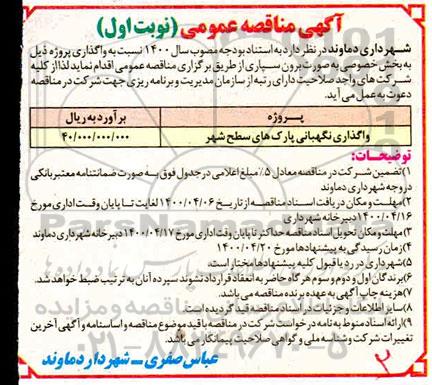 آگهی مناقصه عمومی (نوبت اول)
شهرداری دماوند در نظر دارد به استناد بودجه مصوب سال ۱۴۰۰ نسبت به واگذاری پروژه ذیل
به بخش خصوصی به صورت برون سپاری از طریق برگزاری مناقصه عمومی اقدام نماید لذا از کلیه
شرکت های واجد صلاحیت دارای رتبه از سازمان مدیریت و برنامه ریزی جهت شرکت در مناقصه
دعوت به عمل می آید.
پروژه برآورد به ریال
واگذاری نگهبانی پارک های سطح شهر ۴۰/۰۰۰/۰۰۰/۰۰۰
توضیحات:
۱)تضمین شرکت در مناقصه معادل ۵٪ مبلغ اعلامی در جدول فوق به صورت ضمانتنامه معتبر بانکی
در وجه شهرداری دماوند
۲)مهلت و مکان دریافت اسناد مناقصه از تاریخ ۱۴۰۰/۰۴/۰۶ لغایت تا پایان وقت اداری مورخ
۱۴۰۰/۰۴/۱۶ دبیرخانه شهرداری
۳)مهلت و مکان تحویل اسناد مناقصه حداکثر تا پایان وقت اداری مورخ ۱۴۰۰/۰۴/۱۷ دبیرخانه شهرداری دماوند
۴)زمان رسیدگی به پیشنهادها مورخ ۱۴۰۰/۰۴/۲۰
۵)شهرداری در رد یا قبول کلیه پیشنهادها مختار است.
۶)برندگان اول و دوم و سوم هرگاه حاضر به انعقاد قرارداد نشوند سپرده آنان به ترتیب ضبط خواهد شد.
۷)هزینه چاپ آگهی به عهده برنده مناقصه می باشد.
۸)سایر اطلاعات و جزئیات در اسناد مناقصه قید گردیده است.
۹)ارائه اسناد منوط به نامه درخواست شرکت در مناقصه با قید موضوع مناقصه و اساسنامه و آگهی آخرین
تغییرات شرکت و شناسه ملی و گواهی صلاحیت پیمانکار می باشد.
عباس صفری - شهردار دماوند
۲
ParsNamad
۰۲۱-۸۸۳۴۹۶۷۰-۵